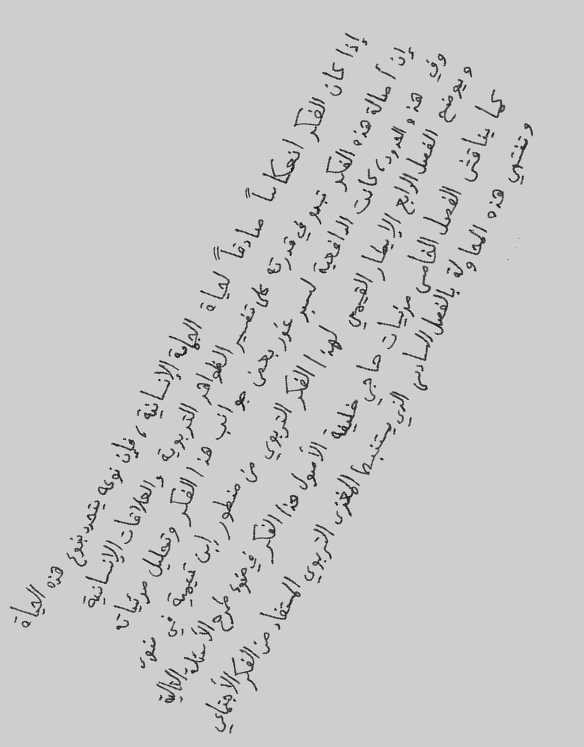 إذا كان الفكر انعكاساً صادقاً لحياة الجماعة الإنسانية، فإن نوعه يتحدد بنوع هذه الحياة
إن أصالة هذه الفكر تبدو في قدرته على تفسير الظواهر التربوية والعلاقات الإنسانية
وفي هذه الحدود، كانت الدافعية لسبر غور بعض جوانب هذا الفكر وتحليل مرئياته
ويوضح الفصل الرابع الإيطار القيمي لهذا الفكر التربوي من منظور إبن تيمية في ضوء
كما يناقش الفصل الخامس مرئيات حاجي خليفة الأصول هذا الفكر في ضوء طرح الأسئلة التالية
وتنتهي هذه المحاولة بالفصل السادس الذي يستنبط المغزى التربوي المستفاد من الفكر الأجتماعي